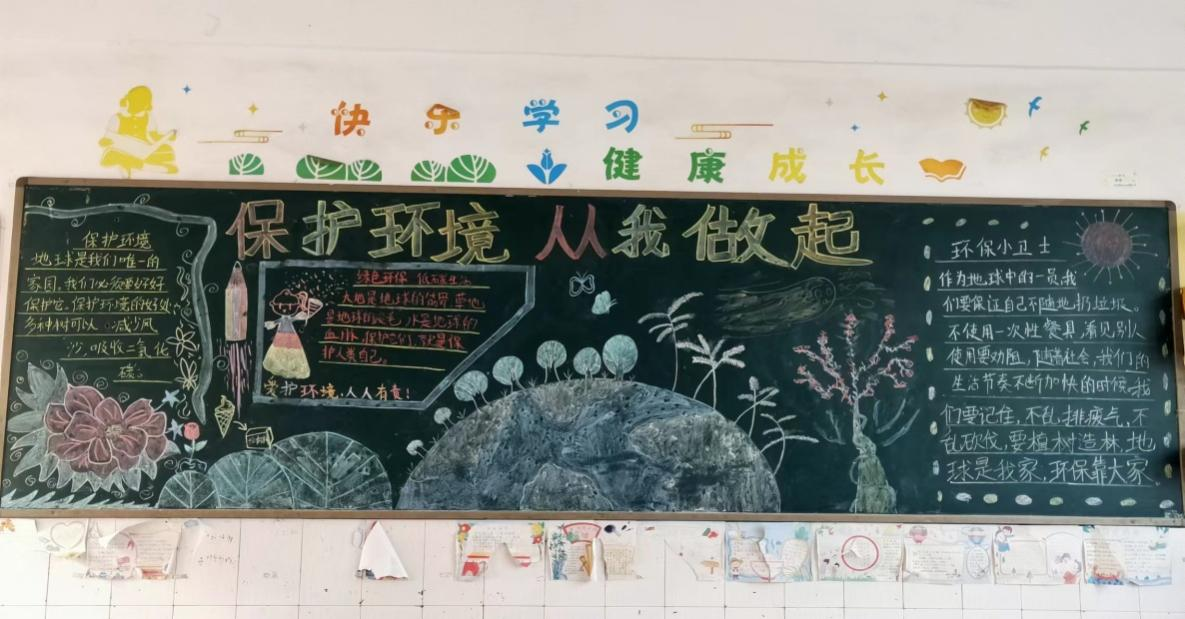 快乐学习
健康成长
保护环境 从我做起
保护环境
地球是我们唯一的
家园,我们必须要好好
保护它。保护环境的好处
多种树可以 减少风
沙,吸收二氧化
碳。
绿色环保 低碳生活
大地是地球的
是地球的 水是地球的
血脉,保护它们,就是保
护人类自己。
爱护环境,人人有责!
环保小卫士
作为地球中的一员,我
们要保证自己不随地扔垃圾。
不使用一次性餐具,看见别人
使用要劝阻,随着社会,我们的
生活节奏不断加快的时候,我
们要记住,不乱排废气,不
乱砍伐,要植树造林,地
球是我家,环保靠大家。